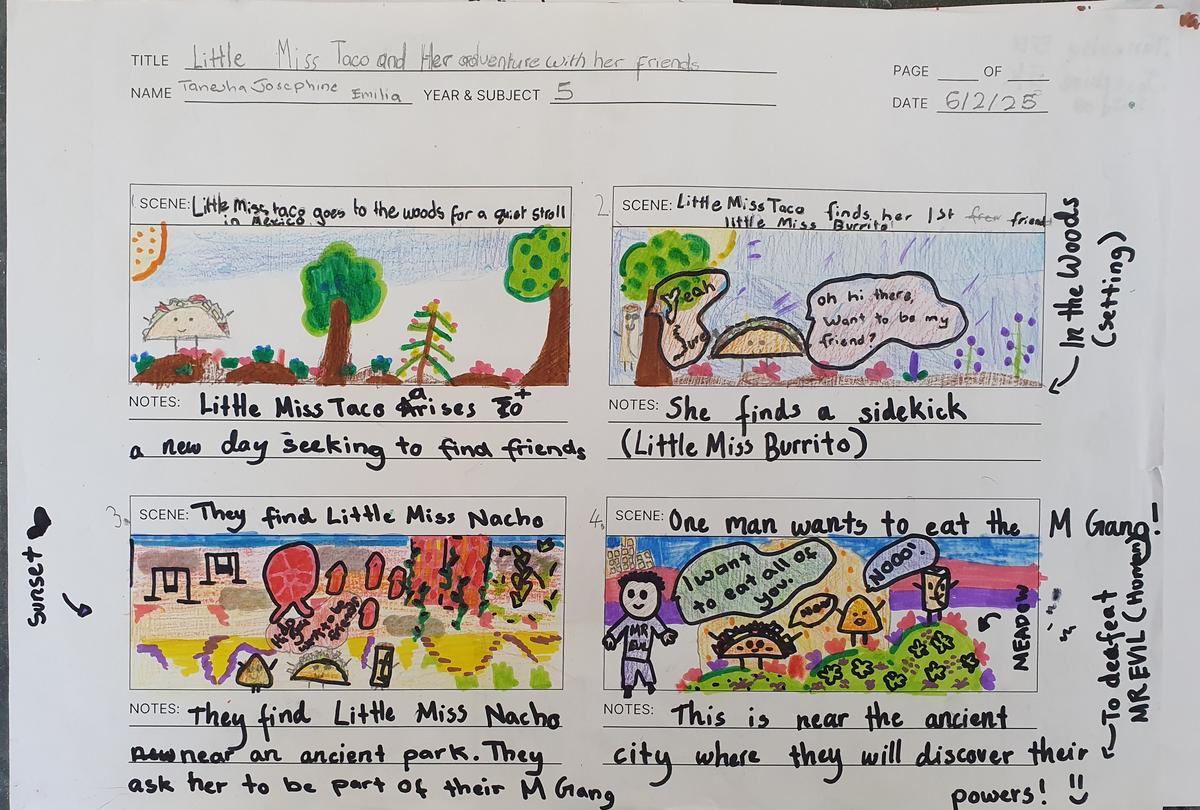 TITLE Little Miss Taco and Her adventure with her friends
NAME Tanesha Josephine Emilia YEAR & SUBJECT 5
PAGE ___ OF ___
DATE 6/2/25
1. SCENE: Little Miss taco goes to the woods for a quiet stroll
in Mexico
NOTES: Little Miss Taco arises to
a new day seeking to find friends
2. SCENE: Little Miss Taco finds her 1st friend
little Miss Burrito!
Yeah
Sure
oh hi there,
Want to be my
friend?
In the Woods
(setting)
NOTES: She finds a sidekick
(Little Miss Burrito)
Sunset
3. SCENE: They find Little Miss Nacho
NOTES: They find Little Miss Nacho
near an ancient park. They
ask her to be part of their M Gang
4. SCENE: One man wants to eat the M Gang!
I want
to eat all of
you!
NOOO!
MR
MEADOW
NOTES: This is near the ancient
city where they will discover their
powers!
To defeat
MR EVIL (Human)